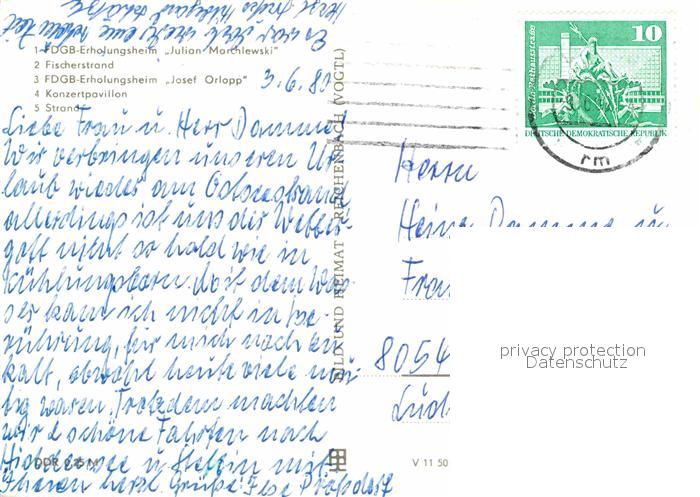 Es war jetzt
1 FDGB-Erholungsheim „Julian Marchlewski"
2 Fischerstrand
3 FDGB-Erholungsheim „Josef Orlopp"
4 Konzertpavillon
5 Strand
3.6.80
Liebe Frau u. Herr Dammus
Wir verbringen unseren Ur-
laub wieder am Ostseestrand
allerdings ist uns der Wetter-
gott nicht so hold wie in
Kühlungsborn. Mit dem Was-
ser kam ich nicht in Be-
rührung, für mich noch zu
kalt, obwohl heute viele
waren. Trotzdem machten
wir schöne Fahrten nach
Hiddensee u. Stettin mit
Ihnen herzl. Grüße
DDR
BILD UND HEIMAT REICHENBACH (VOGTL)
V 11 50
10
DEUTSCHE DEMOKRATISCHE REPUBLIK
rm
Herrn
Heinz Dammus u.
Frau
8054
privacy protection
Datenschutz